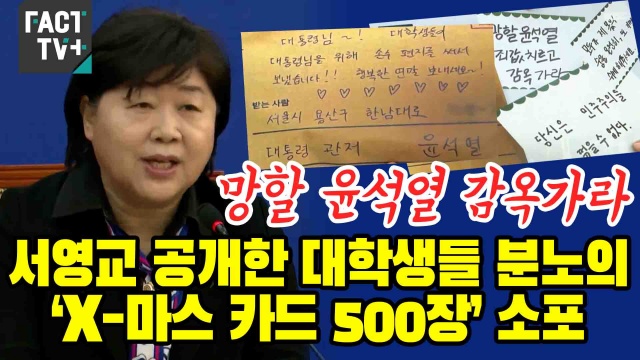 FACT
TV+
대통령님~! 대학생들이
대통령님을 위해 손수 편지를 써서
보냈습니다!! 행복한 연말 보내세요~!
♡ ♡ ♡ ♡ ♡ ♡ ♡
받는 사람
서울시 용산구 한남대로
대통령 관저 윤석열
망할 윤석열
죗값 치르고
감옥 가라
당신은 민주주의를
꺾을 수 없다
망할 윤석열 감옥가라
서영교 공개한 대학생들 분노의
‘X-마스 카드 500장’ 소포